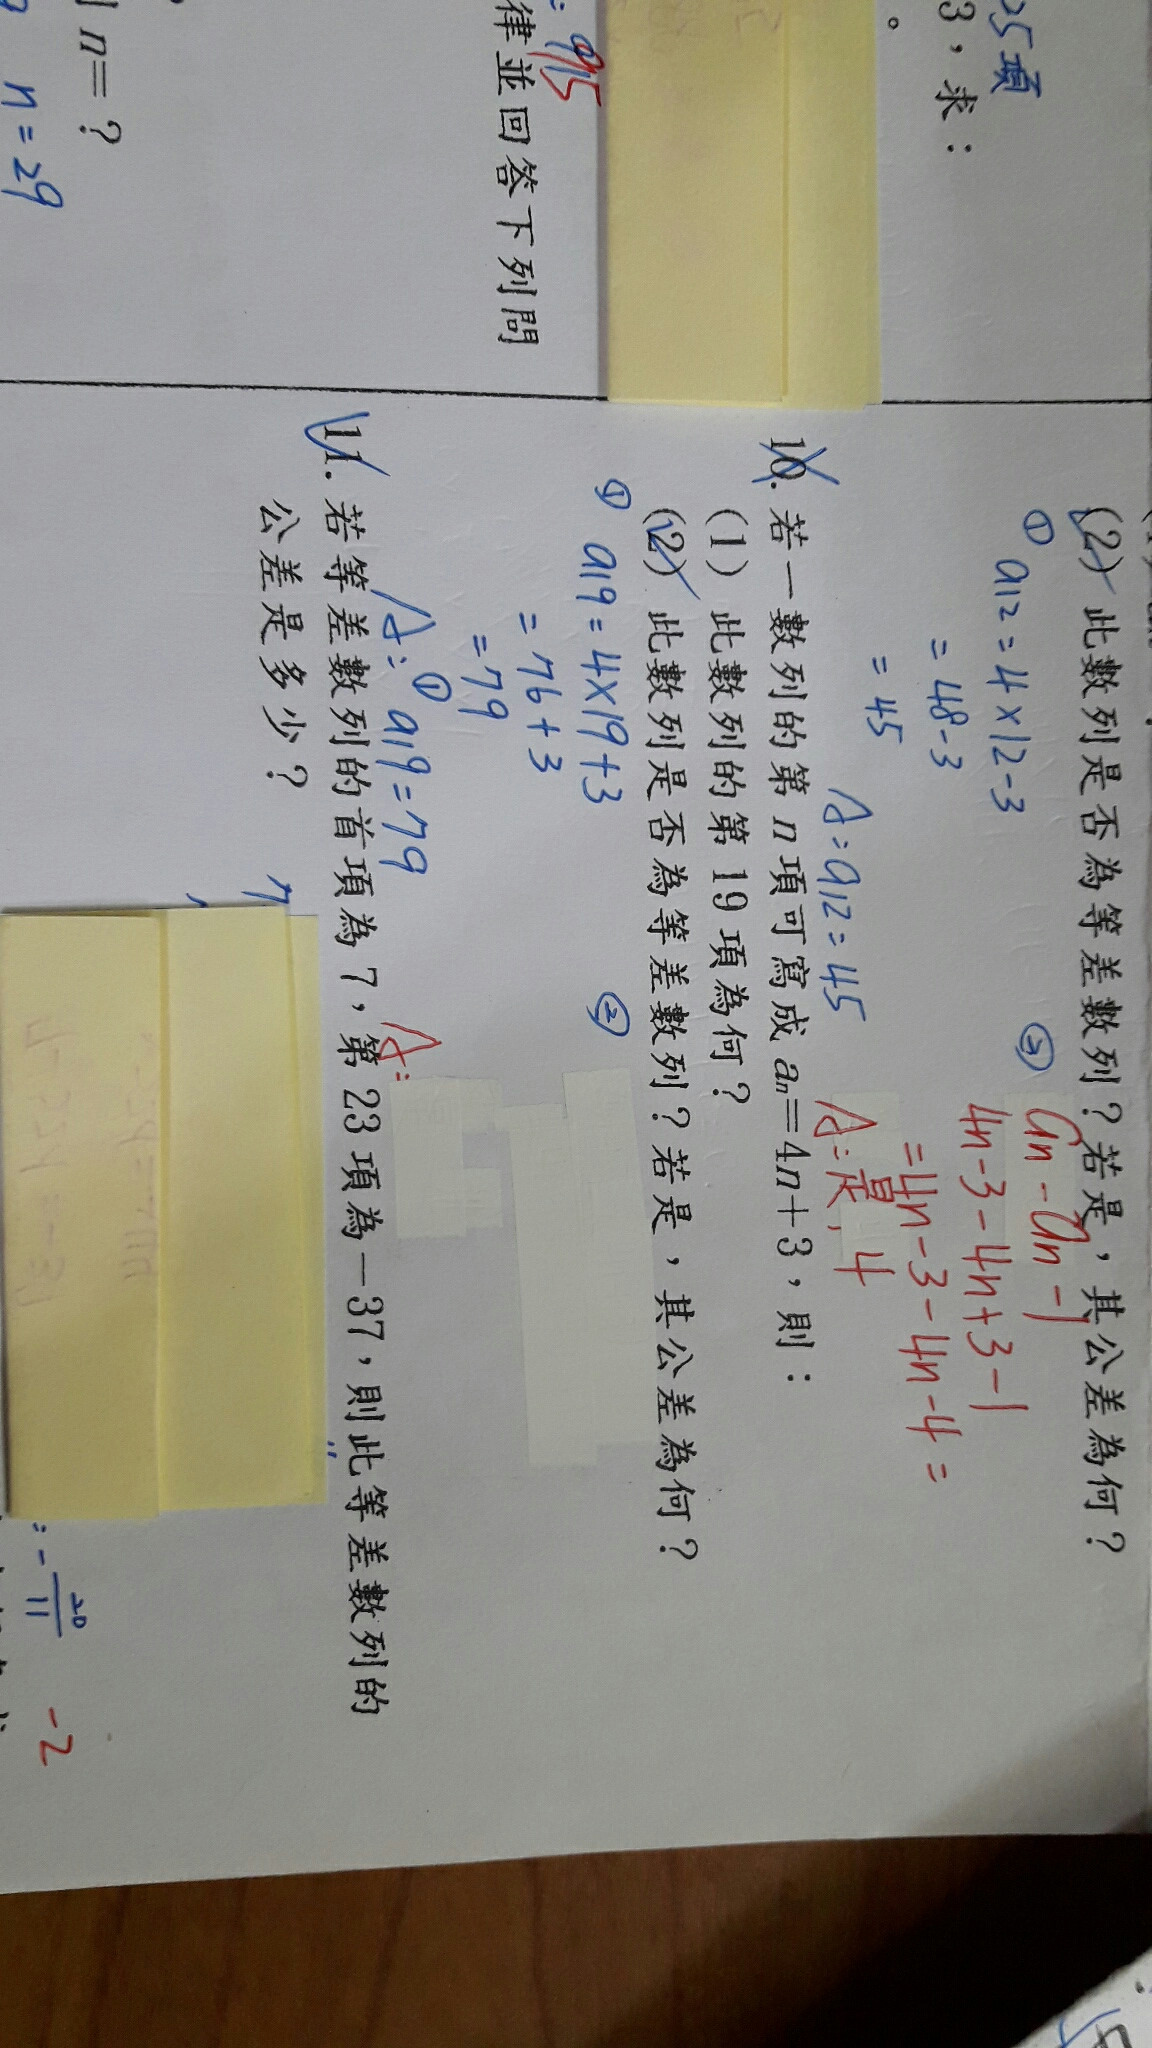 25項
3，求：
。
=915
律並回答下列問
n=？
n=29
(2) 此數列是否為等差數列？若是，其公差為何？
① a12=4×12-3
=48-3
=45
A:a12=45
② an-an-1
4n-3-4n+3-1
=4n-3-4n-4=
A:是，4
10. 若一數列的第 n 項可寫成 an=4n+3，則：
(1) 此數列的第 19 項為何？
(2) 此數列是否為等差數列？若是，其公差為何？
① a19=4×19+3
=76+3
=79
A:① a19=79
②
A:
11. 若等差數列的首項為 7，第 23 項為－37，則此等差數列的
公差是多少？
7
=-20/11
-2